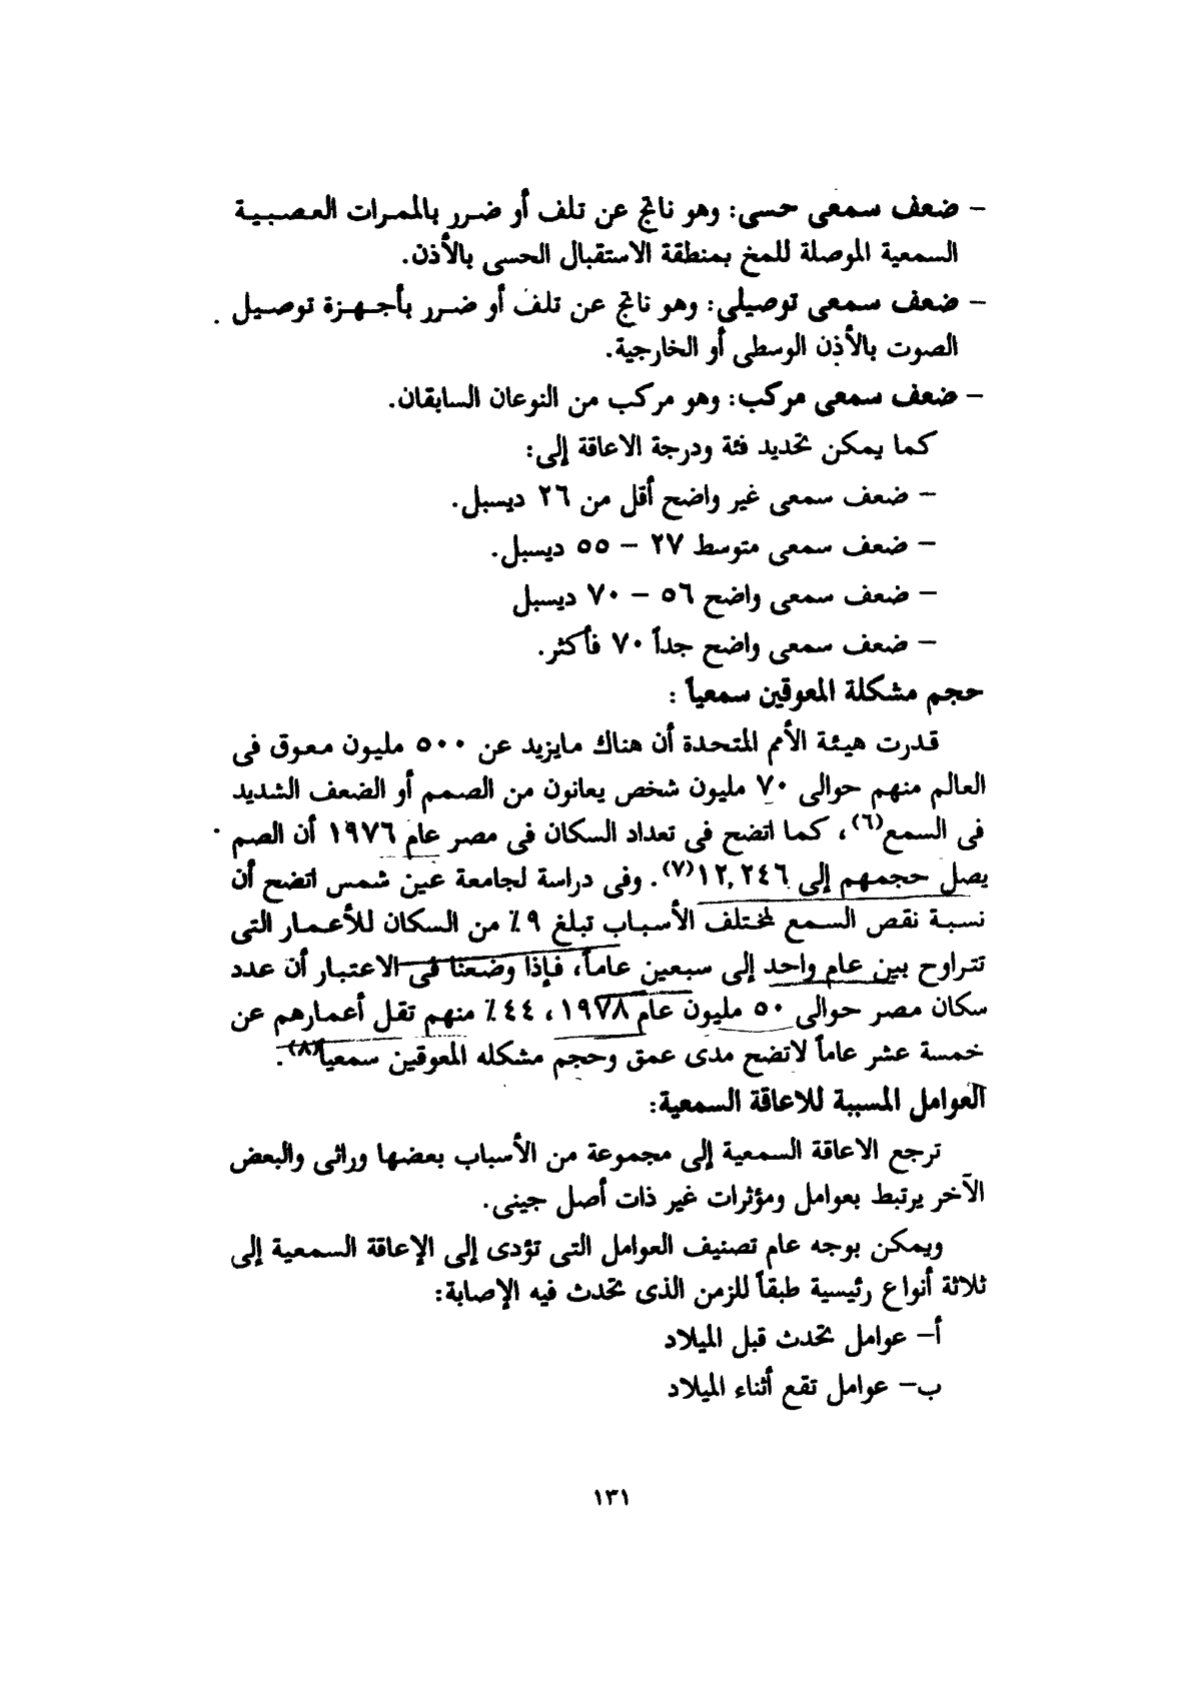 – ضعف سمعى حسى: وهو ناتج عن تلف أو ضرر بالممرات العصبية
السمعية الموصلة للمخ بمنطقة الاستقبال الحسى بالأذن.
– ضعف سمعى توصيلي: وهو ناتج عن تلف أو ضرر بأجهزة توصيل
الصوت بالأذن الوسطى أو الخارجية.
– ضعف سمعى مركب: وهو مركب من النوعان السابقان.
كما يمكن تحديد فئة ودرجة الاعاقة إلى:
– ضعف سمعى غير واضح أقل من ٢٦ ديسبل.
– ضعف سمعى متوسط ٢٧ – ٥٥ ديسبل.
– ضعف سمعى واضح ٥٦ – ٧٠ ديسبل
– ضعف سمعى واضح جداً ٧٠ فأكثر.
حجم مشكلة المعوقين سمعياً :
قدرت هيئة الأمم المتحدة أن هناك مايزيد عن ٥٠٠ مليون معوق فى
العالم منهم حوالى ٧٠ مليون شخص يعانون من الصمم أو الضعف الشديد
فى السمع(٦)، كما اتضح فى تعداد السكان فى مصر عام ١٩٧٦ أن الصم
يصل حجمهم إلى ١٢,٢٤٦(٧). وفى دراسة لجامعة عين شمس اتضح أن
نسبة نقص السمع لمختلف الأسباب تبلغ ٩٪ من السكان للأعمار التى
تتراوح بين عام واحد إلى سبعين عاماً، فإذا وضعنا فى الاعتبار أن عدد
سكان مصر حوالى ٥٠ مليون عام ١٩٧٨، ٤٤٪ منهم تقل أعمارهم عن
خمسة عشر عاماً لاتضح مدى عمق وحجم مشكله المعوقين سمعياً(٨).
العوامل المسببة للاعاقة السمعية:
ترجع الاعاقة السمعية إلى مجموعة من الأسباب بعضها وراثى والبعض
الآخر يرتبط بعوامل ومؤثرات غير ذات أصل جينى.
ويمكن بوجه عام تصنيف العوامل التى تؤدى إلى الإعاقة السمعية إلى
ثلاثة أنواع رئيسية طبقاً للزمن الذى تحدث فيه الإصابة:
أ– عوامل تحدث قبل الميلاد
ب– عوامل تقع أثناء الميلاد
١٣١